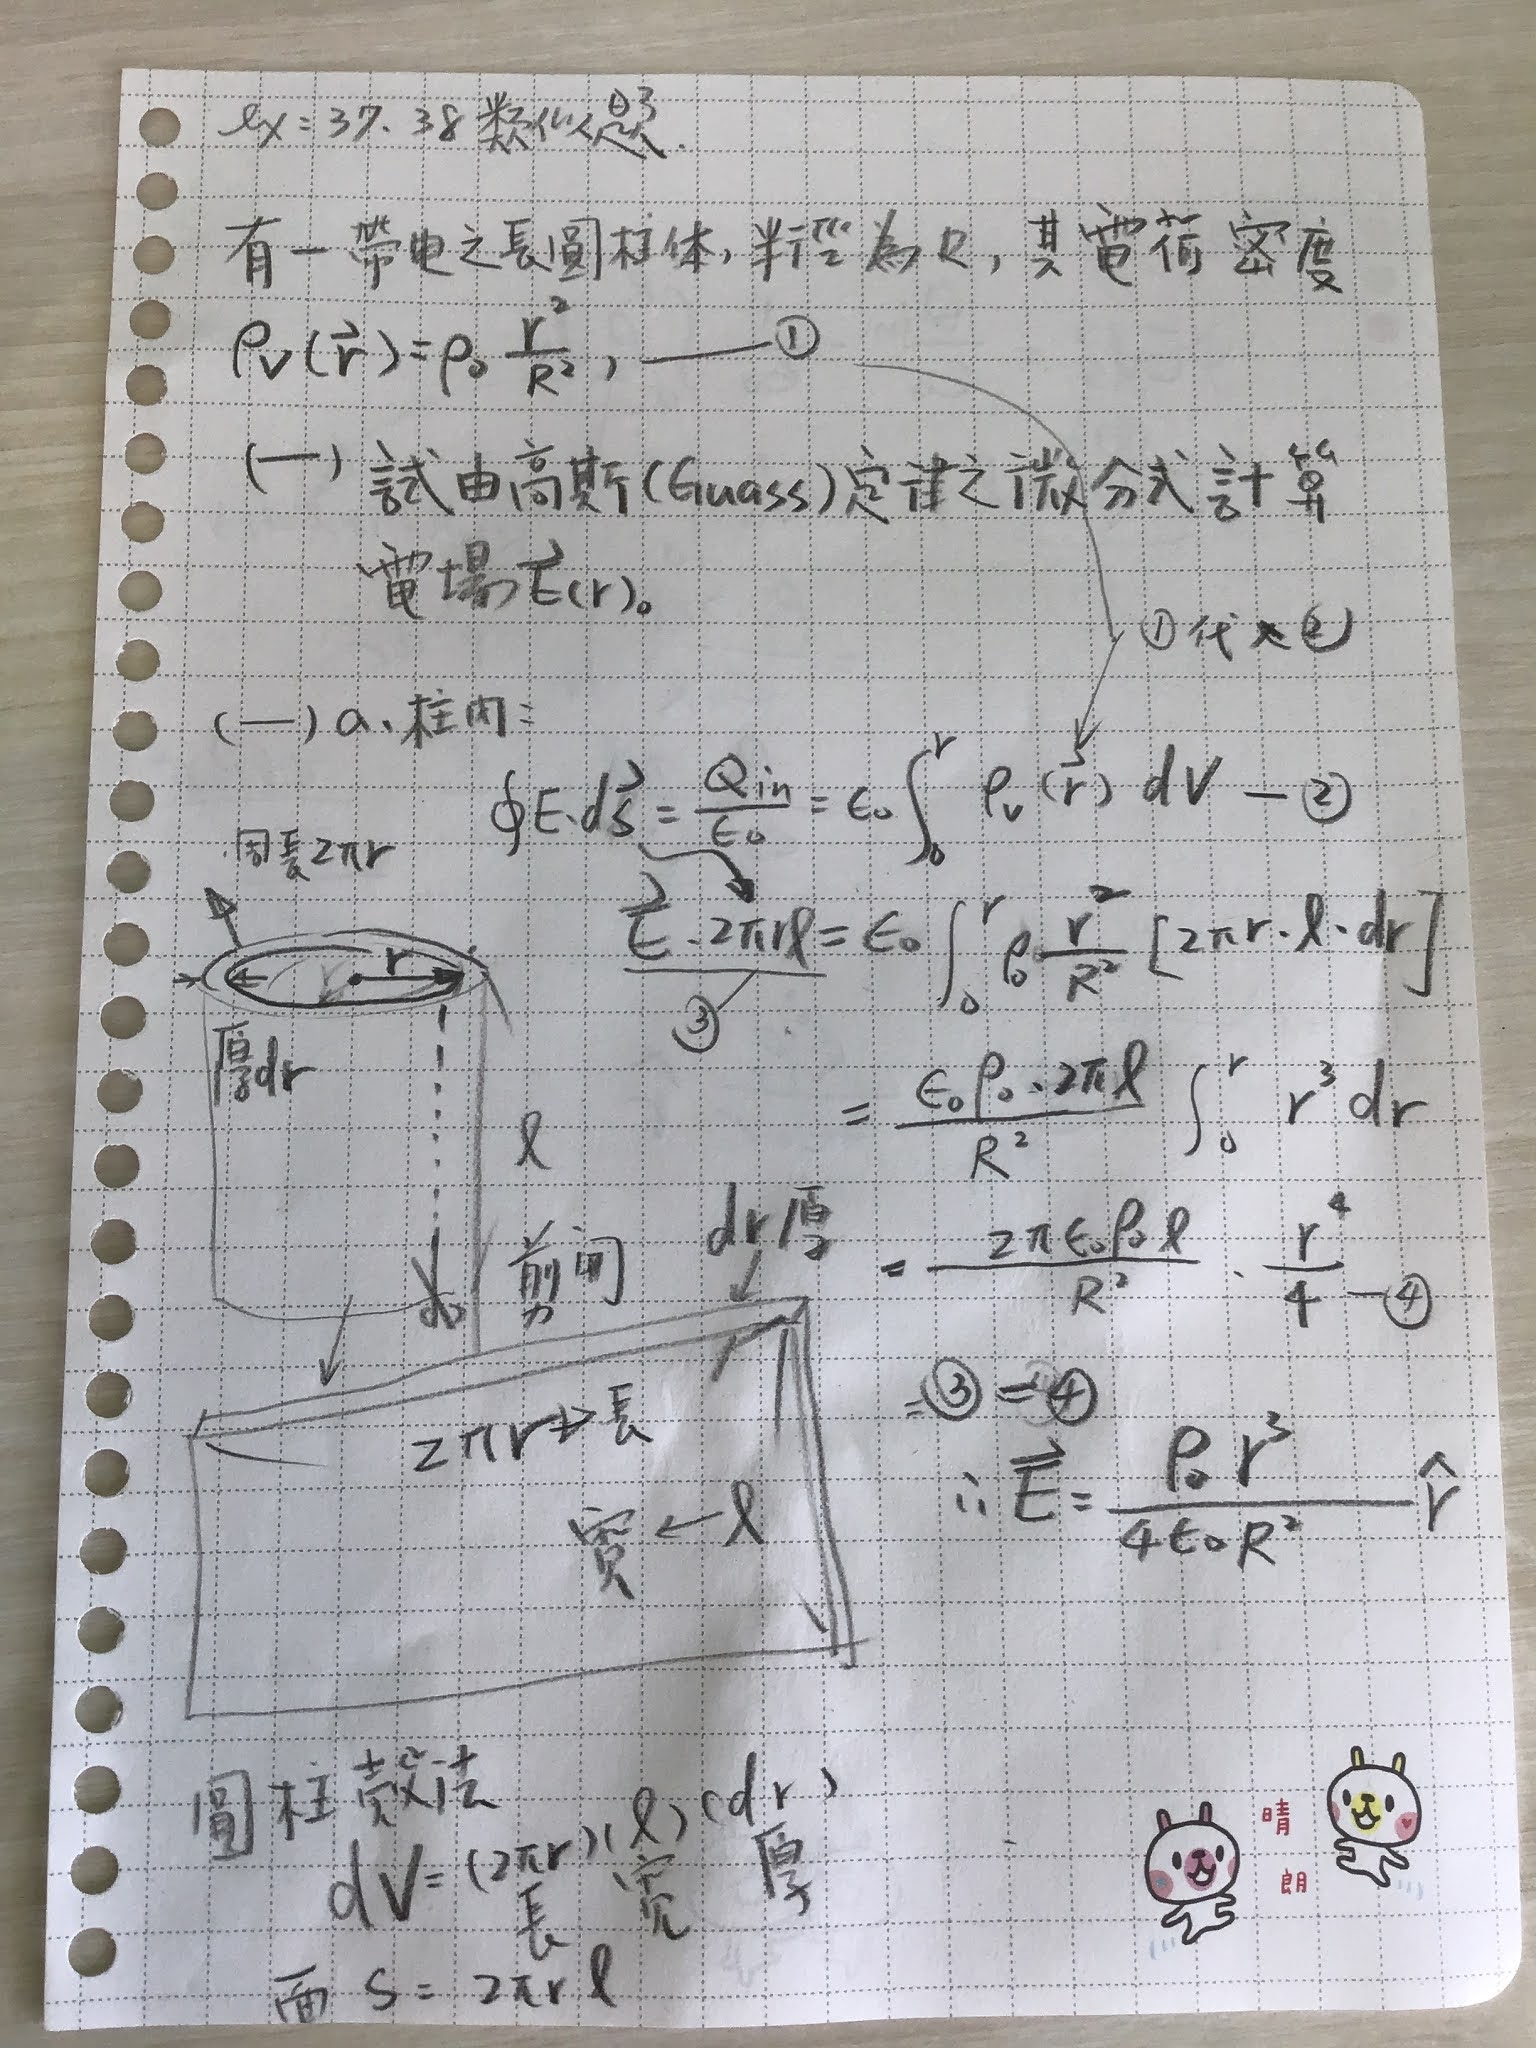 ex=37.38 類似題.
有一帶电之長圓柱体,半徑為R,其電荷密度
ρv(r⃗)=ρ₀ r²/R², ——①
(一) 試由高斯(Guass)定律之微分式計算
電場E⃗(r)。
①代入②
(一) a、柱內:
∮E·ds⃗ = Qin/ϵ₀ = ϵ₀∫₀ʳ ρv(r⃗) dV —②
周長2πr
E⃗·2πrl = ϵ₀∫₀ʳ ρ₀ r²/R² [2πr·l·dr]
③
r
厚dr
= ϵ₀ρ₀·2πl/R² ∫₀ʳ r³ dr
l
剪開
dr厚
= 2πϵ₀ρ₀l/R² · r⁴/4 —④
③=④
2πr→長
∴ E⃗ = ρ₀r³/4ϵ₀R² r̂
寬←l
圓柱殼法
dV=(2πr)(l)(dr)
長 寬 厚
面 S= 2πrl
晴
朗